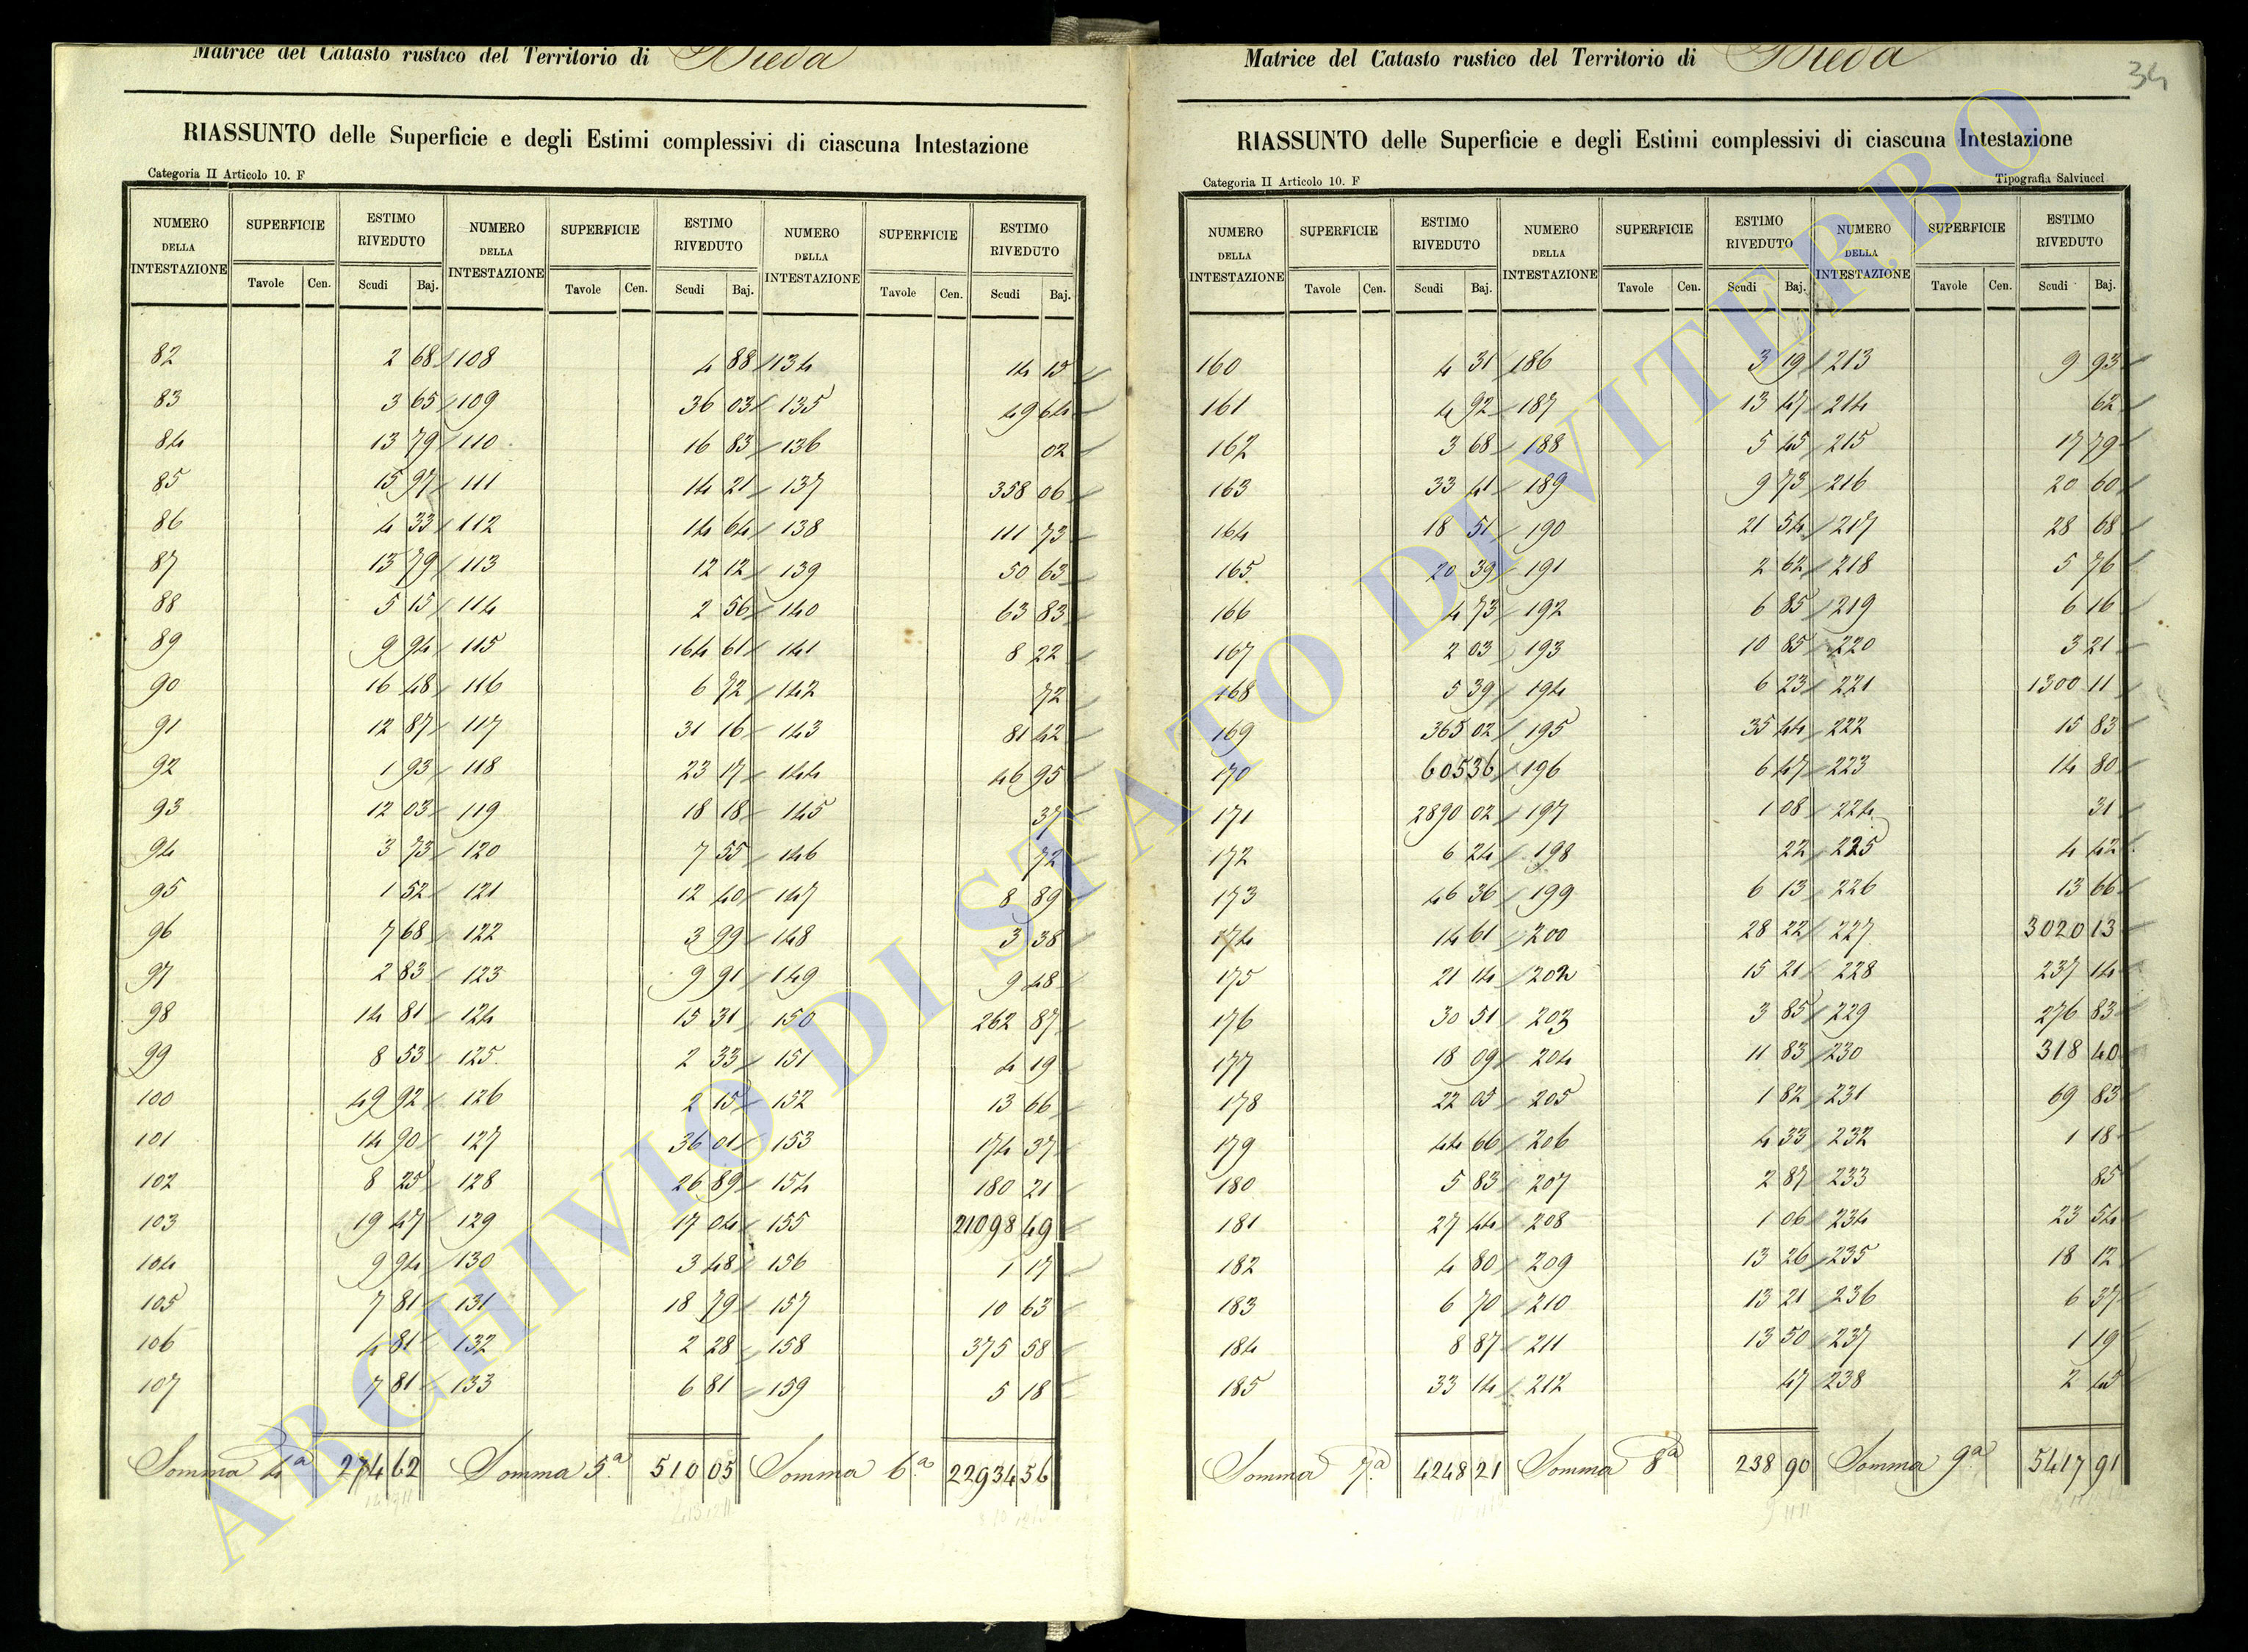 Matrice del Catasto rustico del Territorio di Bieda
RIASSUNTO delle Superficie e degli Estimi complessivi di ciascuna Intestazione
Categoria II Articolo 10. F
NUMERO DELLA INTESTAZIONE SUPERFICIE ESTIMO RIVEDUTO NUMERO DELLA INTESTAZIONE SUPERFICIE ESTIMO RIVEDUTO NUMERO DELLA INTESTAZIONE SUPERFICIE ESTIMO RIVEDUTO
Tavole Cen. Scudi Baj. Tavole Cen. Scudi Baj. Tavole Cen. Scudi Baj.
82 2 68 108 4 88 134 14 15
83 3 65 109 36 03 135 49 64
84 13 79 110 16 83 136 02
85 15 97 111 14 21 137 358 06
86 4 33 112 14 64 138 111 73
87 13 79 113 12 12 139 50 63
88 5 15 114 2 56 140 63 83
89 9 94 115 164 61 141 8 22
90 16 48 116 6 72 142 72
91 12 87 117 31 16 143 81 42
92 1 93 118 23 17 144 46 95
93 12 03 119 18 18 145 37
94 3 73 120 7 55 146 72
95 1 52 121 12 40 147 8 89
96 7 68 122 3 99 148 3 38
97 2 83 123 9 91 149 9 48
98 14 81 124 15 31 150 262 87
99 8 53 125 2 33 151 4 19
100 49 92 126 2 15 152 13 66
101 14 90 127 36 01 153 174 37
102 8 25 128 26 89 154 180 21
103 19 47 129 17 04 155 21098 49
104 9 94 130 3 48 156 1 17
105 7 81 131 18 79 157 10 63
106 4 81 132 2 28 158 375 58
107 7 81 133 6 81 159 5 18
Somma 4a 274 62 Somma 5a 510 05 Somma 6a 22934 56
Matrice del Catasto rustico del Territorio di Bieda
34
RIASSUNTO delle Superficie e degli Estimi complessivi di ciascuna Intestazione
Categoria II Articolo 10. F Tipografia Salviucci
NUMERO DELLA INTESTAZIONE SUPERFICIE ESTIMO RIVEDUTO NUMERO DELLA INTESTAZIONE SUPERFICIE ESTIMO RIVEDUTO NUMERO DELLA INTESTAZIONE SUPERFICIE ESTIMO RIVEDUTO
Tavole Cen. Scudi Baj. Tavole Cen. Scudi Baj. Tavole Cen. Scudi Baj.
160 4 31 186 3 19 213 9 93
161 4 92 187 13 47 214 62
162 3 68 188 5 45 215 17 79
163 33 41 189 9 73 216 20 60
164 18 51 190 21 54 217 28 68
165 20 39 191 2 62 218 5 76
166 4 73 192 6 85 219 6 16
167 2 03 193 10 85 220 3 21
168 5 39 194 6 23 221 1300 11
169 365 02 195 35 44 222 15 83
170 605 36 196 6 47 223 14 80
171 2890 02 197 1 08 224 31
172 6 24 198 22 225 4 42
173 46 36 199 6 13 226 13 66
174 14 61 200 28 22 227 3020 13
175 21 14 202 15 21 228 237 14
176 30 51 203 3 85 229 276 83
177 18 09 204 11 83 230 318 40
178 22 05 205 1 82 231 69 83
179 44 66 206 4 33 232 1 18
180 5 83 207 2 87 233 85
181 27 44 208 1 06 234 23 54
182 4 80 209 13 26 235 18 12
183 6 70 210 13 21 236 6 37
184 8 87 211 13 50 237 1 19
185 33 14 212 47 238 2 45
Somma 7a 4248 21 Somma 8a 238 90 Somma 9a 5417 91
ARCHIVIO DI STATO DI VITERBO